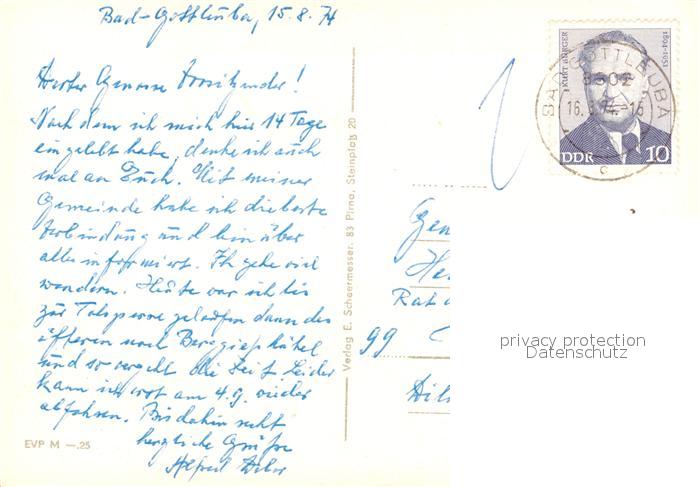 Bad-Gottleuba, 15.8.74
Werter Genosse Vorsitzender!
Nach dem ich mich hier 14 Tage
eingelebt habe, denke ich auch
mal an Euch. Mit meiner
Gemeinde habe ich die beste
Verbindung und bin über
alles informiert. Ich gehe viel
wandern. Heute war ich bis
zur Talsperre gelaufen dann des
öfteren nach Berggießhübel
und so vergeht die Zeit. Leider
kann ich erst am 4.9. wieder
abfahren. Bis dahin recht
herzliche Grüße
Alfred
EVP M —.25
Verlag E. Schaermesser, 83 Pirna, Steinplatz 20
KURT BÜRGER
1894-1951
DDR 10
BAD GOTTLEUBA
8302
16.8.74.-16
c
Gen
He
Rat d
99
privacy protection
Datenschutz